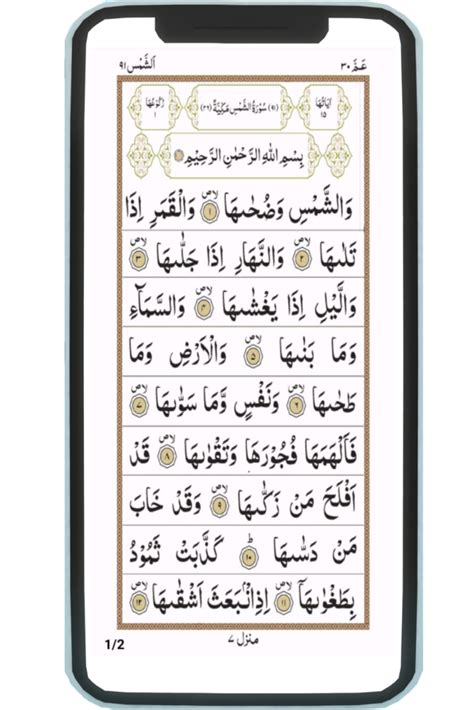 عَمَّ ٣٠ اَلشَّمْس ٩١
اٰيَاتُهَا ١٥ (٩١) سُوْرَةُ الشَّمْسِ مَكِّيَّةٌ (٢٦) رُكُوْعُهَا ١
بِسْمِ اللّٰهِ الرَّحْمٰنِ الرَّحِيْمِ
وَالشَّمْسِ وَضُحٰىهَا ۙ ١ وَالْقَمَرِ اِذَا
تَلٰىهَا ۙ ٢ وَالنَّهَارِ اِذَا جَلّٰىهَا ۙ ٣
وَالَّيْلِ اِذَا يَغْشٰىهَا ۙ ٤ وَالسَّمَآءِ
وَمَا بَنٰىهَا ۙ ٥ وَالْاَرْضِ وَمَا
طَحٰىهَا ۙ ٦ وَنَفْسٍ وَّمَا سَوّٰىهَا ۙ ٧
فَاَلْهَمَهَا فُجُوْرَهَا وَتَقْوٰىهَا ۙ ٨ قَدْ
اَفْلَحَ مَنْ زَكّٰىهَا ۙ ٩ وَقَدْ خَابَ
مَنْ دَسّٰىهَا ؕ ١٠ كَذَّبَتْ ثَمُوْدُ
بِطَغْوٰىهَاۤ ۙ ١١ اِذِانْۢبَعَثَ اَشْقٰىهَا ۙ ١٢
منزل ٧
1/2